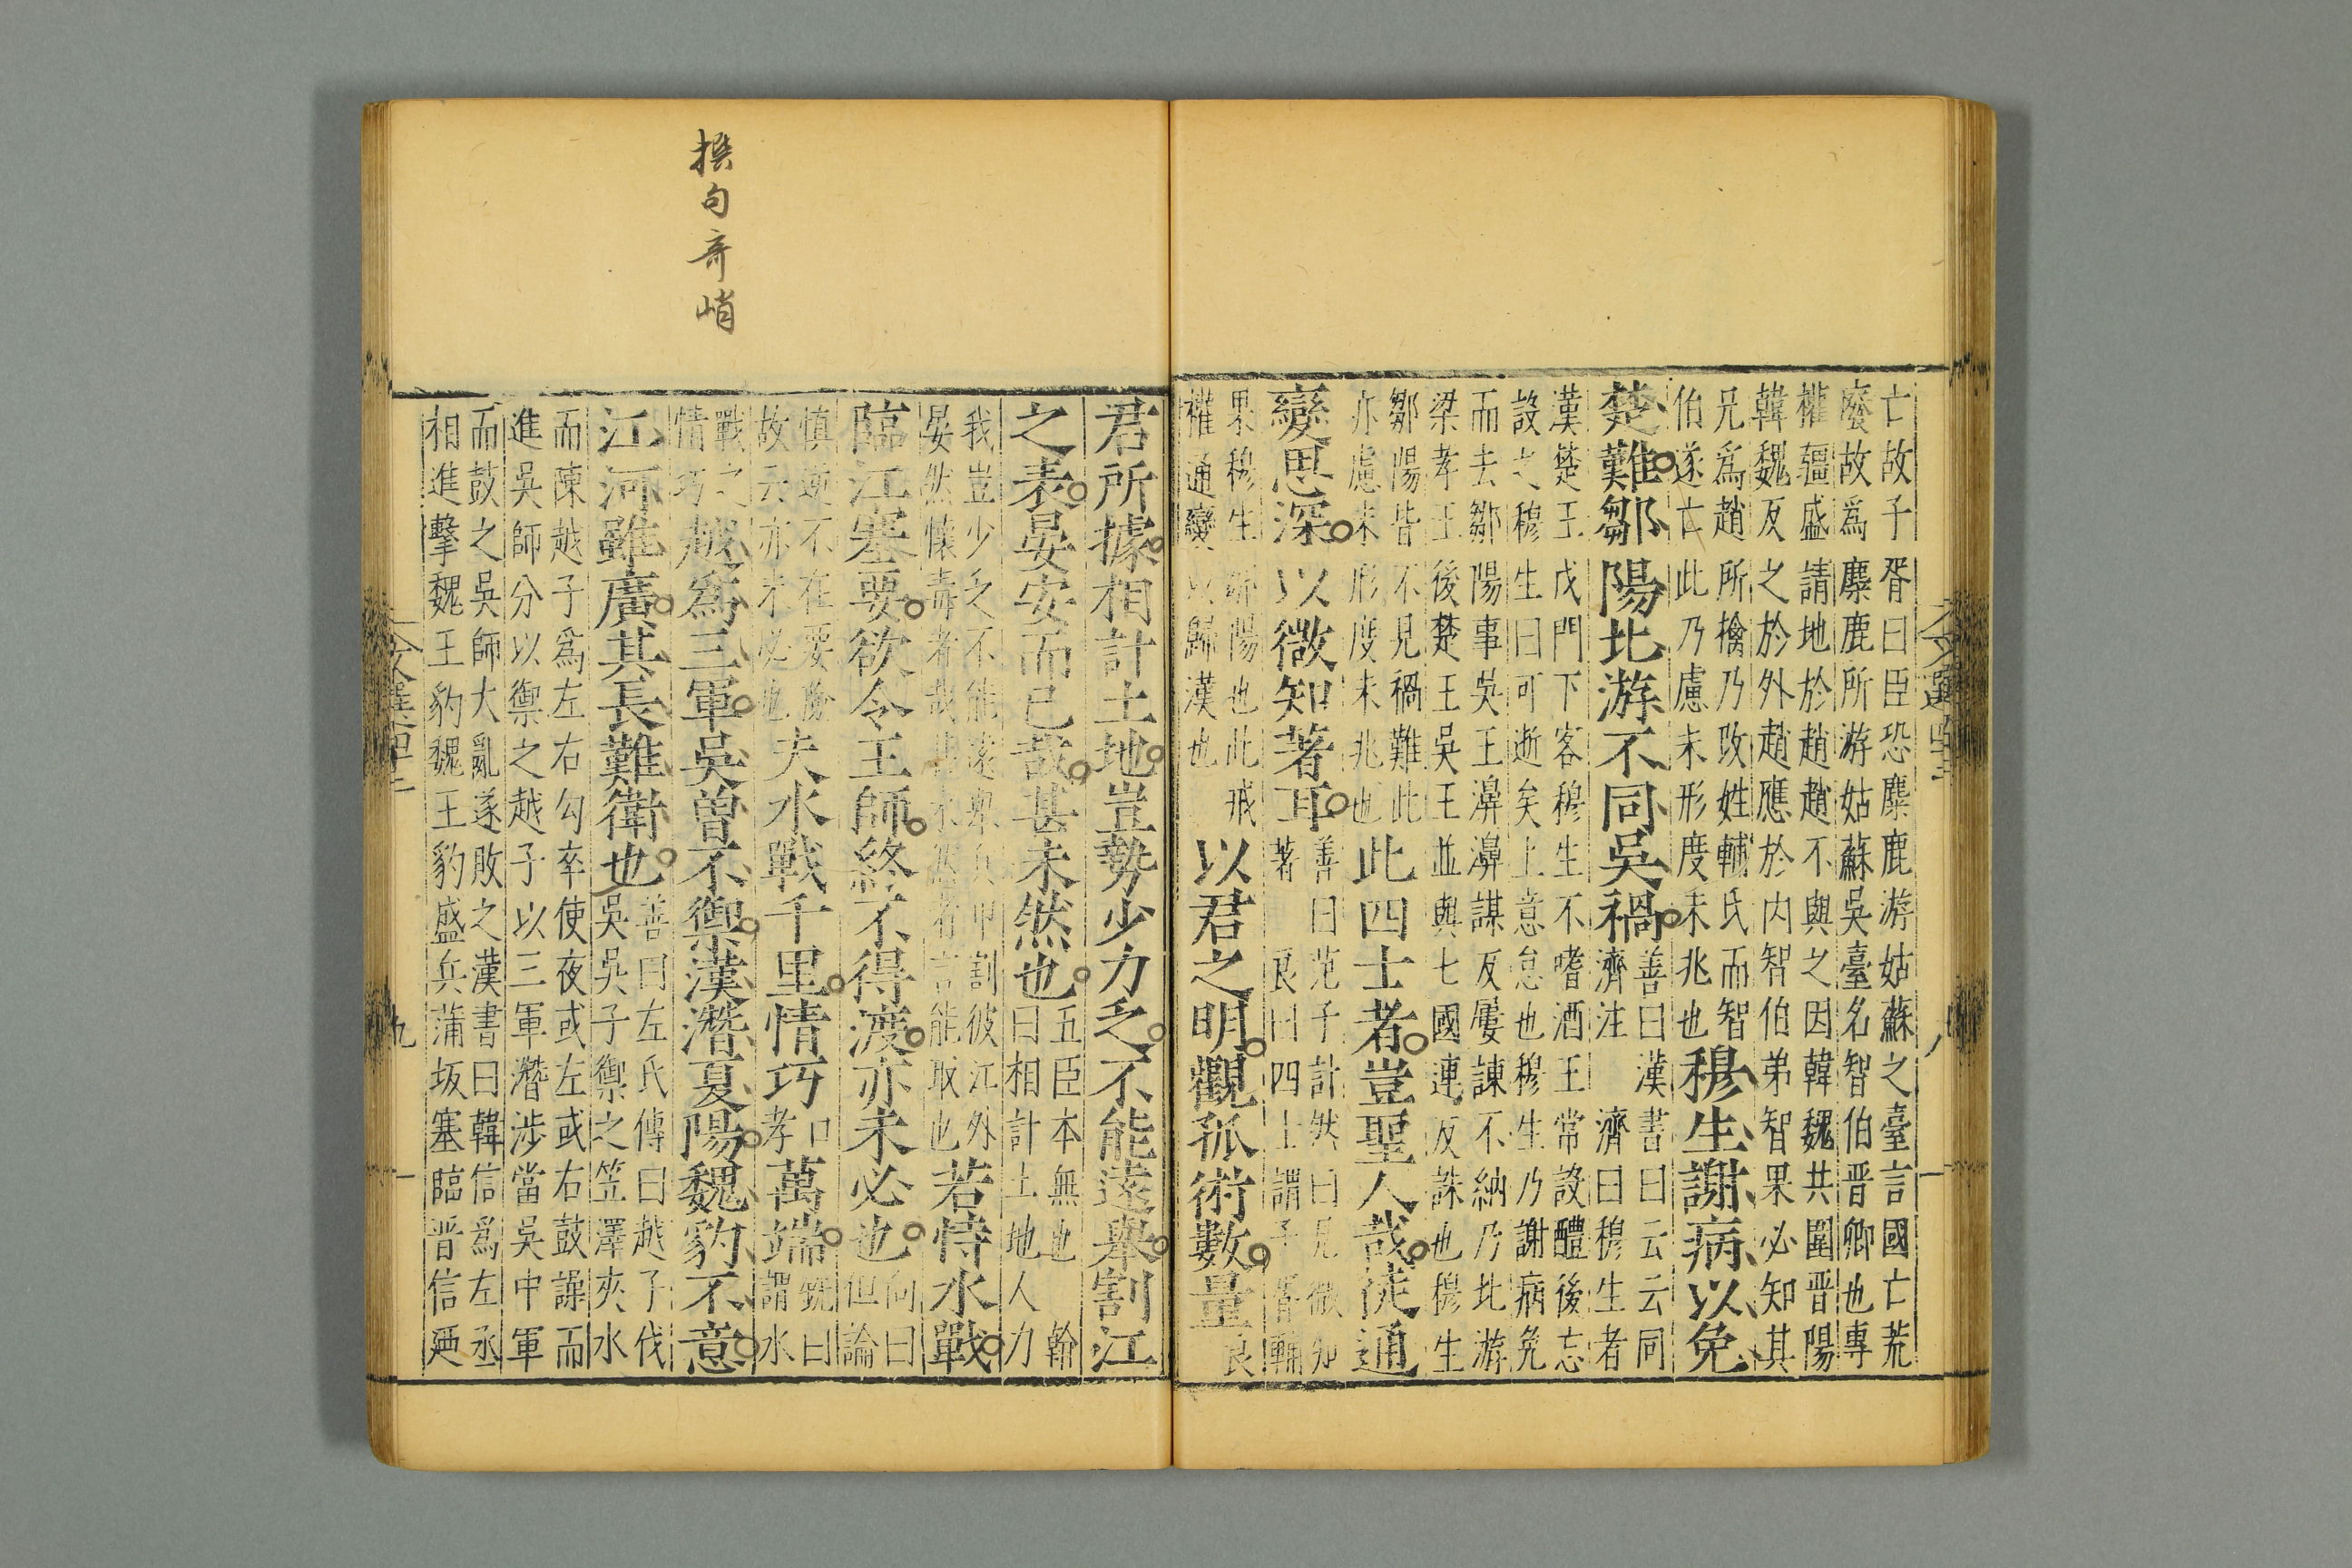 亡故子胥曰臣恐麋鹿游姑蘇之臺言國亡荒
廢故爲麋鹿所游姑蘇吳臺名智伯晋卿也專
權彊盛請地於趙趙不與之因韓魏共圍晋陽
韓魏反之於外趙應於内智伯弟智果必知其
兄爲趙所擒乃改姓輔氏而智
伯遂亡此乃慮未形度未兆也
穆生謝病以免
楚難鄒陽北游不同吳禍
善曰漢書曰云云同
濟注 濟曰穆生者
漢楚王戊門下客穆生不嗜酒王常設醴後忘
設之穆生曰可逝矣上意怠也穆生乃謝病免
而去鄒陽事吳王濞濞謀反屢諫不納乃北游
梁孝王後楚王吳王並與七國連反誅也穆生
鄒陽皆不見禍難此
亦慮未形度未兆也
此四士者豈聖人哉徒通
變思深以微知著耳
善曰范子計然曰見微知
著 良曰四士謂子胥輔
果穆生鄒陽也此戒
權通變以歸漢也
以君之明觀孤術數量
良
文選卷四十二
八
君所據相計土地豈勢少力乏不能遠舉割江
之表晏安而已哉甚未然也
五臣本無也 翰
曰相計土地人力
我豈少之不能遠舉兵甲割彼江外
晏然懷毒者哉甚未然者言能取也
若恃水戰
臨江塞要欲令王師終不得渡亦未必也
向曰
但論
慎逆不在要險
故云亦未必也
夫水戰千里情巧
口
孝
萬端
銑曰
謂水
戰之
情巧
越爲三軍吳曾不禦漢潛夏陽魏豹不意
江河雖廣其長難衛也
善曰左氏傳曰越子伐
吳吳子禦之笠澤夾水
而陳越子爲左右勾卒使夜或左或右鼓譟而
進吳師分以禦之越子以三軍潛涉當吳中軍
而鼓之吳師大亂遂敗之漢書曰韓信爲左丞
相進擊魏王豹魏王豹盛兵蒲坂塞臨晋信迺
九
撰句奇峭